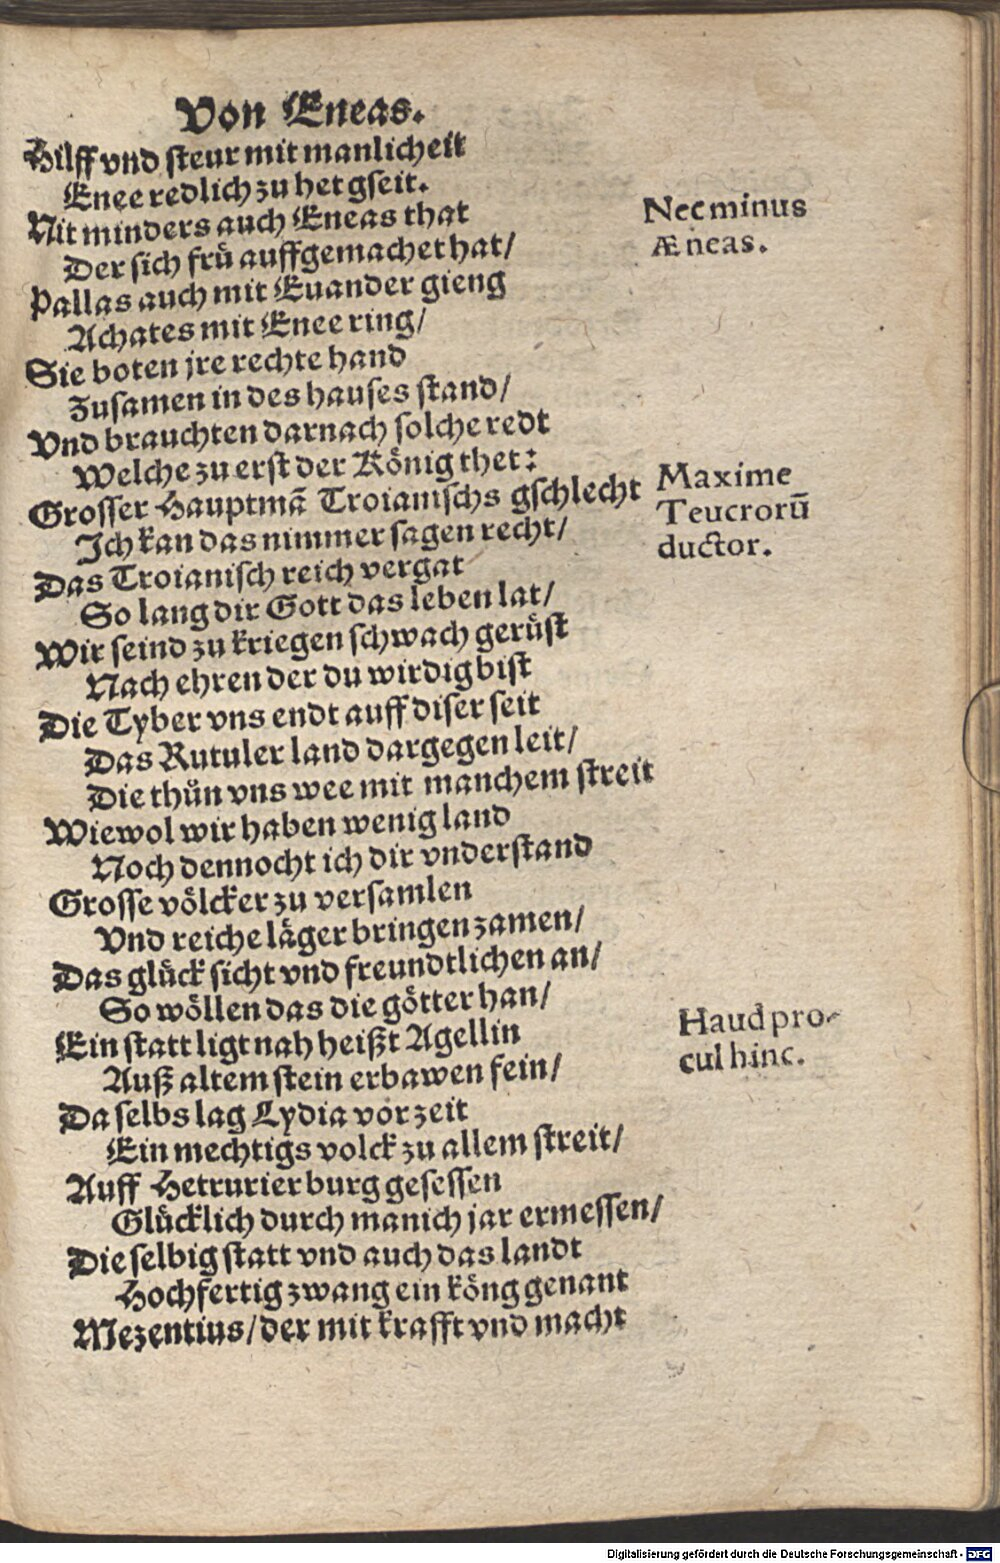 Von Eneas.
Hilff vnd steur mit manlicheit
Enee redlich zu het gseit.
Nit minders auch Eneas that
Der sich frü auffgemachet hat/
Pallas auch mit Euander gieng
Achates mit Enee ring/
Sie boten jre rechte hand
Zusamen in des hauses stand/
Vnd brauchten darnach solche redt
Welche zu erst der König thet:
Grosser Hauptmã Troianischs gschlecht
Ich kan das nimmer sagen recht/
Das Troianisch reich vergat
So lang dir Gott das leben lat/
Wir seind zu kriegen schwach gerüst
Nach ehren der du wirdig bist
Die Tyber vns endt auff diser seit
Das Rutuler land dargegen leit/
Die thün vns wee mit manchem streit
Wiewol wir haben wenig land
Noch dennocht ich dir vnderstand
Grosse völcker zu versamlen
Vnd reiche läger bringen zamen/
Das glück sicht vnd freundtlichen an/
So wöllen das die götter han/
Ein statt ligt nah heißt Agellin
Auß altem stein erbawen fein/
Da selbs lag Lydia vor zeit
Ein mechtigs volck zu allem streit/
Auff Hetrurier burg gesessen
Glücklich durch manich jar ermessen/
Die selbig statt vnd auch das landt
Hochfertig zwang ein köng genant
Mezentius/der mit krafft vnd macht
Nec minus
Æneas.
Maxime
Teucrorũ
ductor.
Haud pro-
cul hinc.
Digitalisierung gefördert durch die Deutsche Forschungsgemeinschaft - DFG